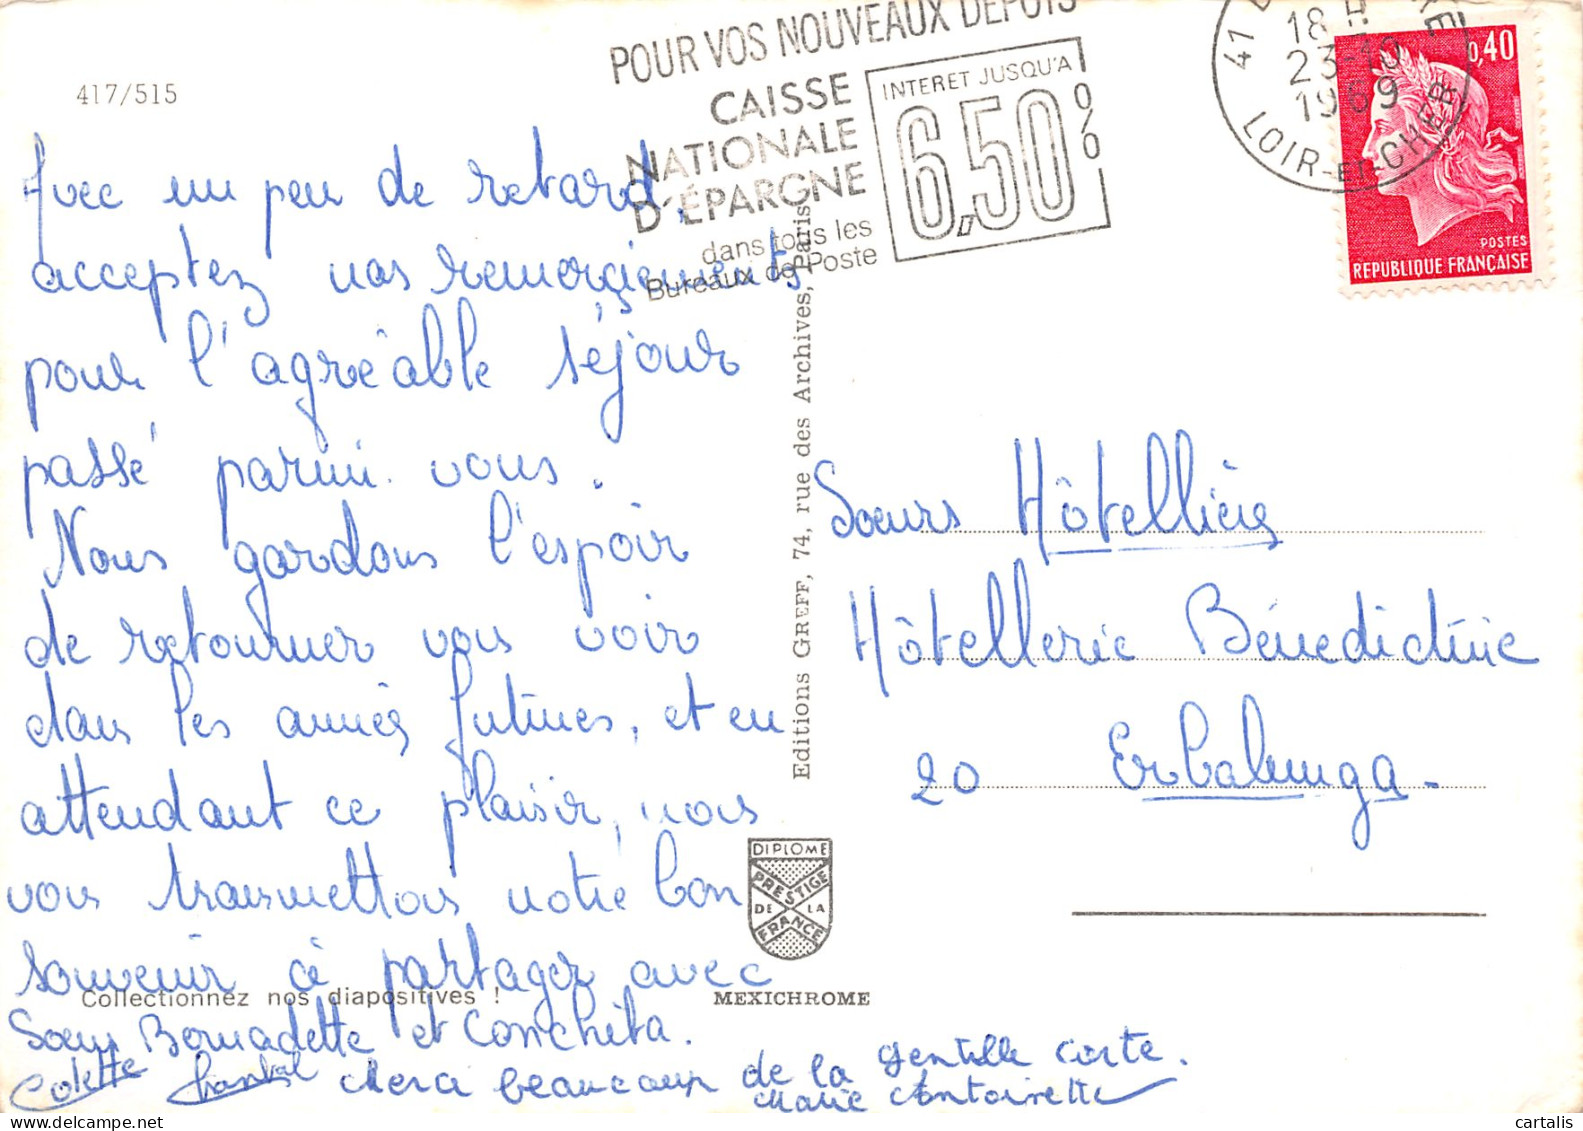 417/515
POUR VOS NOUVEAUX DEPOTS
CAISSE
NATIONALE
D'ÉPARGNE
dans tous les
Bureaux de Poste
INTERET JUSQU'A
6,50%
41
18 H
23-10
1969
LOIR-ET-CHER
0,40
POSTES
REPUBLIQUE FRANÇAISE
Avec un peu de retard,
acceptez nos remerçiements
pour l'agréable séjour
passé parmi vous.
Nous gardons l'espoir
de retourner vous voir
dans les années futures, et en
attendant ce plaisir, nous
vous transmettons notre bon
souvenir à partager avec
Soeur Bernadette et Conchita.
Colette Chantal Merci beaucoup de la gentille carte.
Marie Antoinette
Editions GREFF, 74, rue des Archives, Paris
Soeurs Hôtellières
Hôtellerie Bénédictine
20 Erbalunga-
DIPLOME
PRESTIGE
DE LA
FRANCE
Collectionnez nos diapositives !
MEXICHROME
cartalis